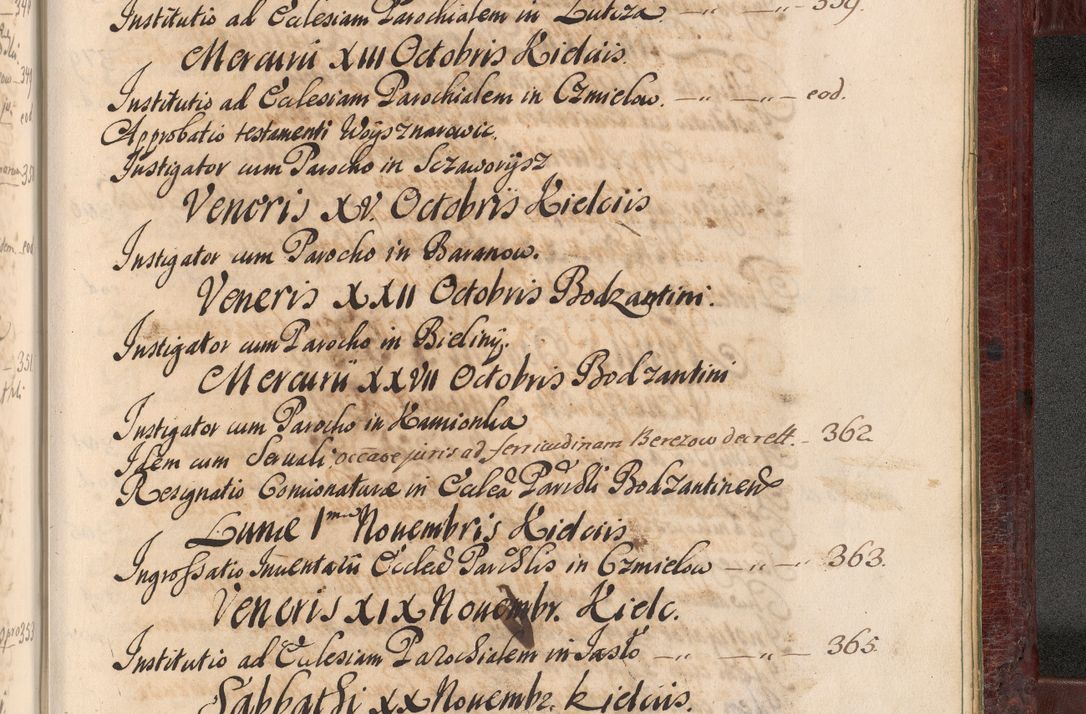 Institutio ad Ecclesiam Parochialem in Lutcza. — " — " — 359.
Mercurii XIII Octobris Kielciis.
Institutio ad Ecclesiam Parochialem in Czmielow. — " — " — eod.
Approbatio testamenti Woysznarowic.
Instigator cum Parocho in Sczaworÿsz
Veneris XV. Octobris Kielciis
Instigator cum Parocho in Baranow.
Veneris XXII Octobris Bodzantini.
Instigator cum Parocho in Bielinÿ.
Mercurii XXVII Octobris Bodzantini
Instigator cum Parocho in Kamionka
Idem cum Seruali, occaōe juris ad Berezow decrett. — 362
Resignatio Comionaturæ in Eccleā Parchli Bodzantinen
Lunæ 1ma Nouembris Kielciis
Ingrossatio Inuentarii Eccleæ Parchlis in Czmielow — " — " — 363.
Veneris XIX Nouembr. Kielc.
Institutio ad Ecclesiam Parochialem in Jasło — " — " — 365.
Sabbathi XX Novembr. Kielciis.
349
349
eod
eod
351
353